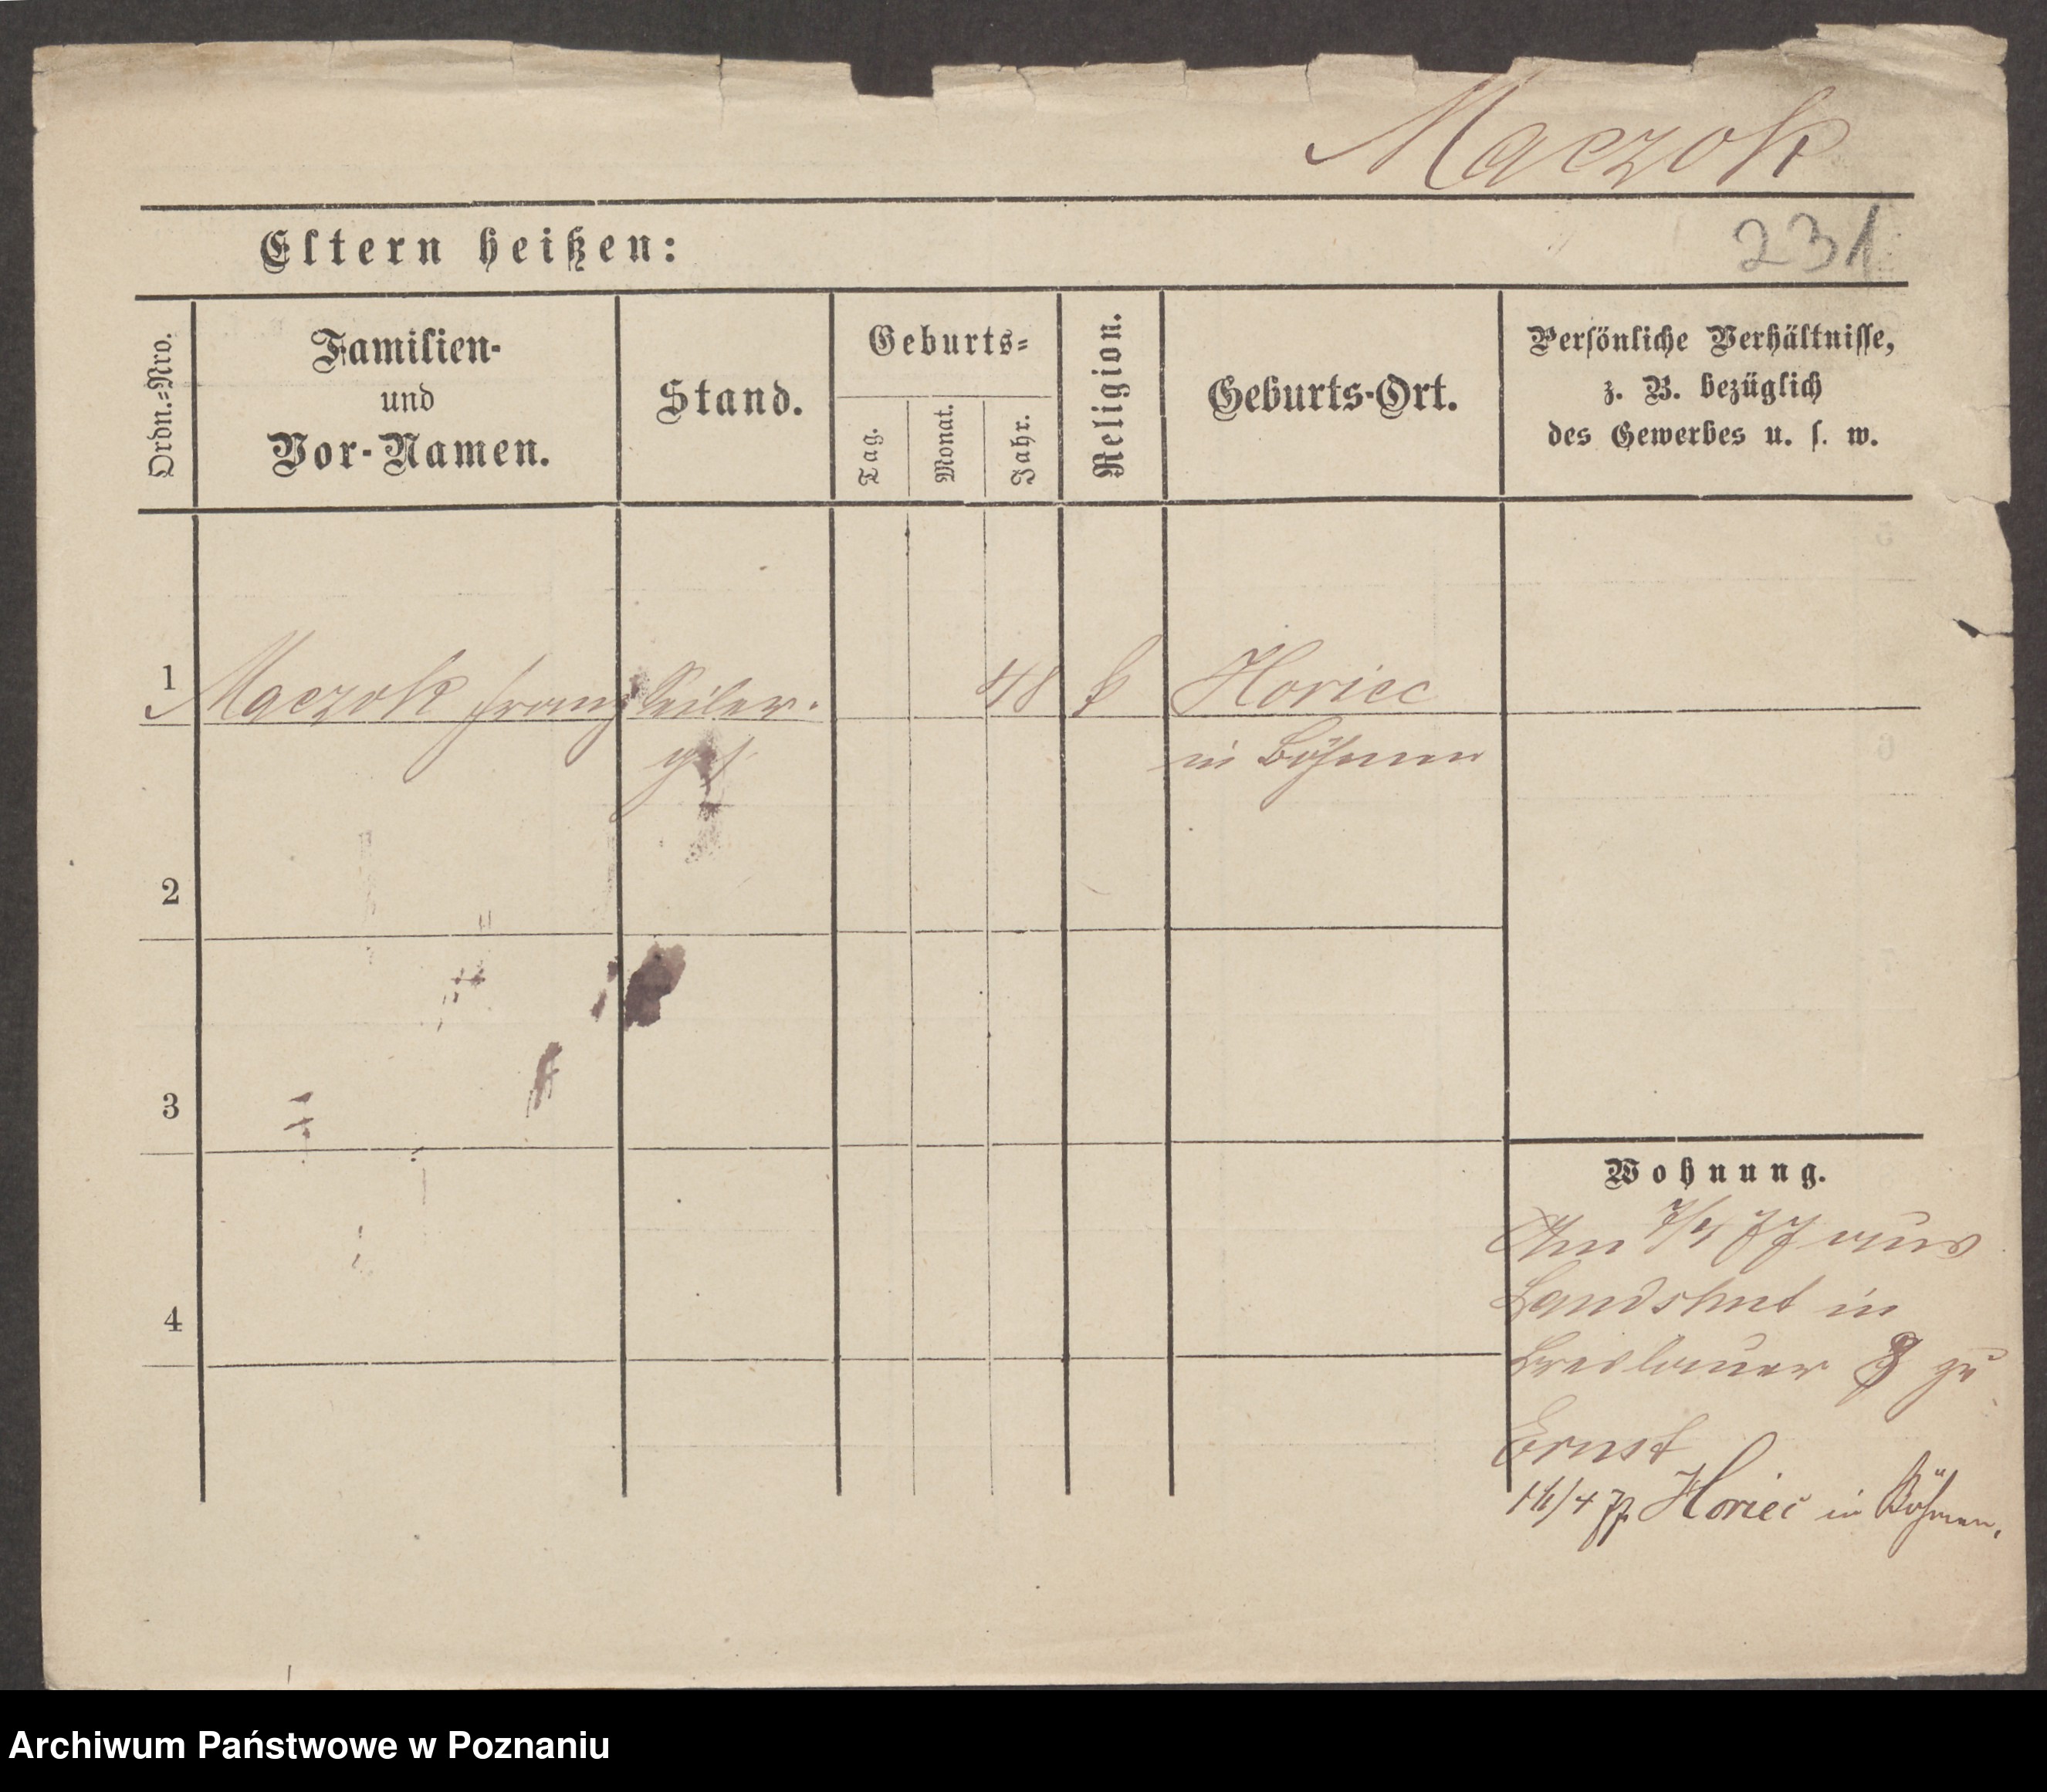 Maczok
Eltern heißen:
231
Ordn.=Nro.
Familien-
und
Vor-Namen.
Stand.
Geburts=
Tag.
Monat.
Jahr.
Religion.
Geburts-Ort.
Persönliche Verhältnisse,
z. B. bezüglich
des Gewerbes u. s. w.
1 Maczok Franz Seiler. 48 k Horiec
in Böhmen
2
3
4
Wohnung.
Am 7/4 77 aus
Landshut in
Breslauer 9 zu
Ernst
16/4 77 Horiec in Böhmen.
Archiwum Państwowe w Poznaniu